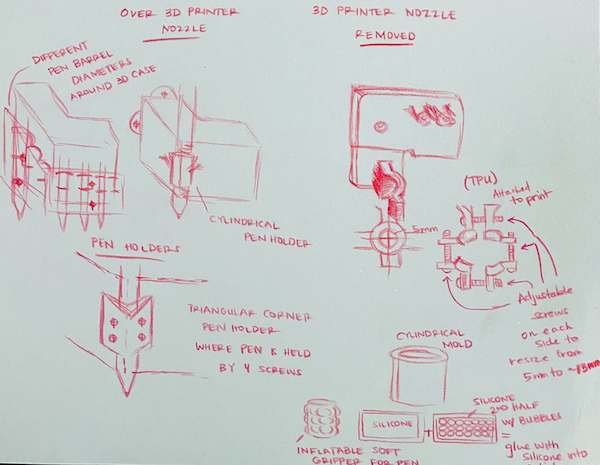 OVER 3D PRINTER
NOZZLE
3D PRINTER NOZZLE
REMOVED
DIFFERENT
PEN BARREL
DIAMETERS
AROUND 3D CASE
CYLINDRICAL
PEN HOLDER
5mm
(TPU)
Attached
to print
Adjustable
screws
on each
side to
resize from
5mm to ~13mm
PEN HOLDERS
TRIANGULAR CORNER
PEN HOLDER
WHERE PEN IS HELD
BY 4 SCREWS
CYLINDRICAL
MOLD
INFLATABLE SOFT
GRIPPER FOR PEN
SILICONE
+
SILICONE
2ND HALF
W/ BUBBLES
=
glue with
silicone into